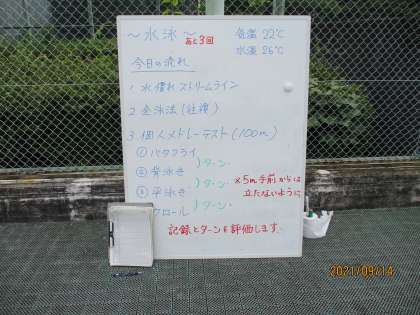 ～水泳～
あと3回
気温 22℃
水温 26℃
今日の流れ
1. 水慣れ ストリームライン
2. 全泳法(往復)
3. 個人メドレーテスト(100m)
① バタフライ
ターン
② 背泳ぎ
ターン
③ 平泳ぎ
ターン
クロール
※5m手前からは
立たないように
記録とターンを評価します。
2021/09/14